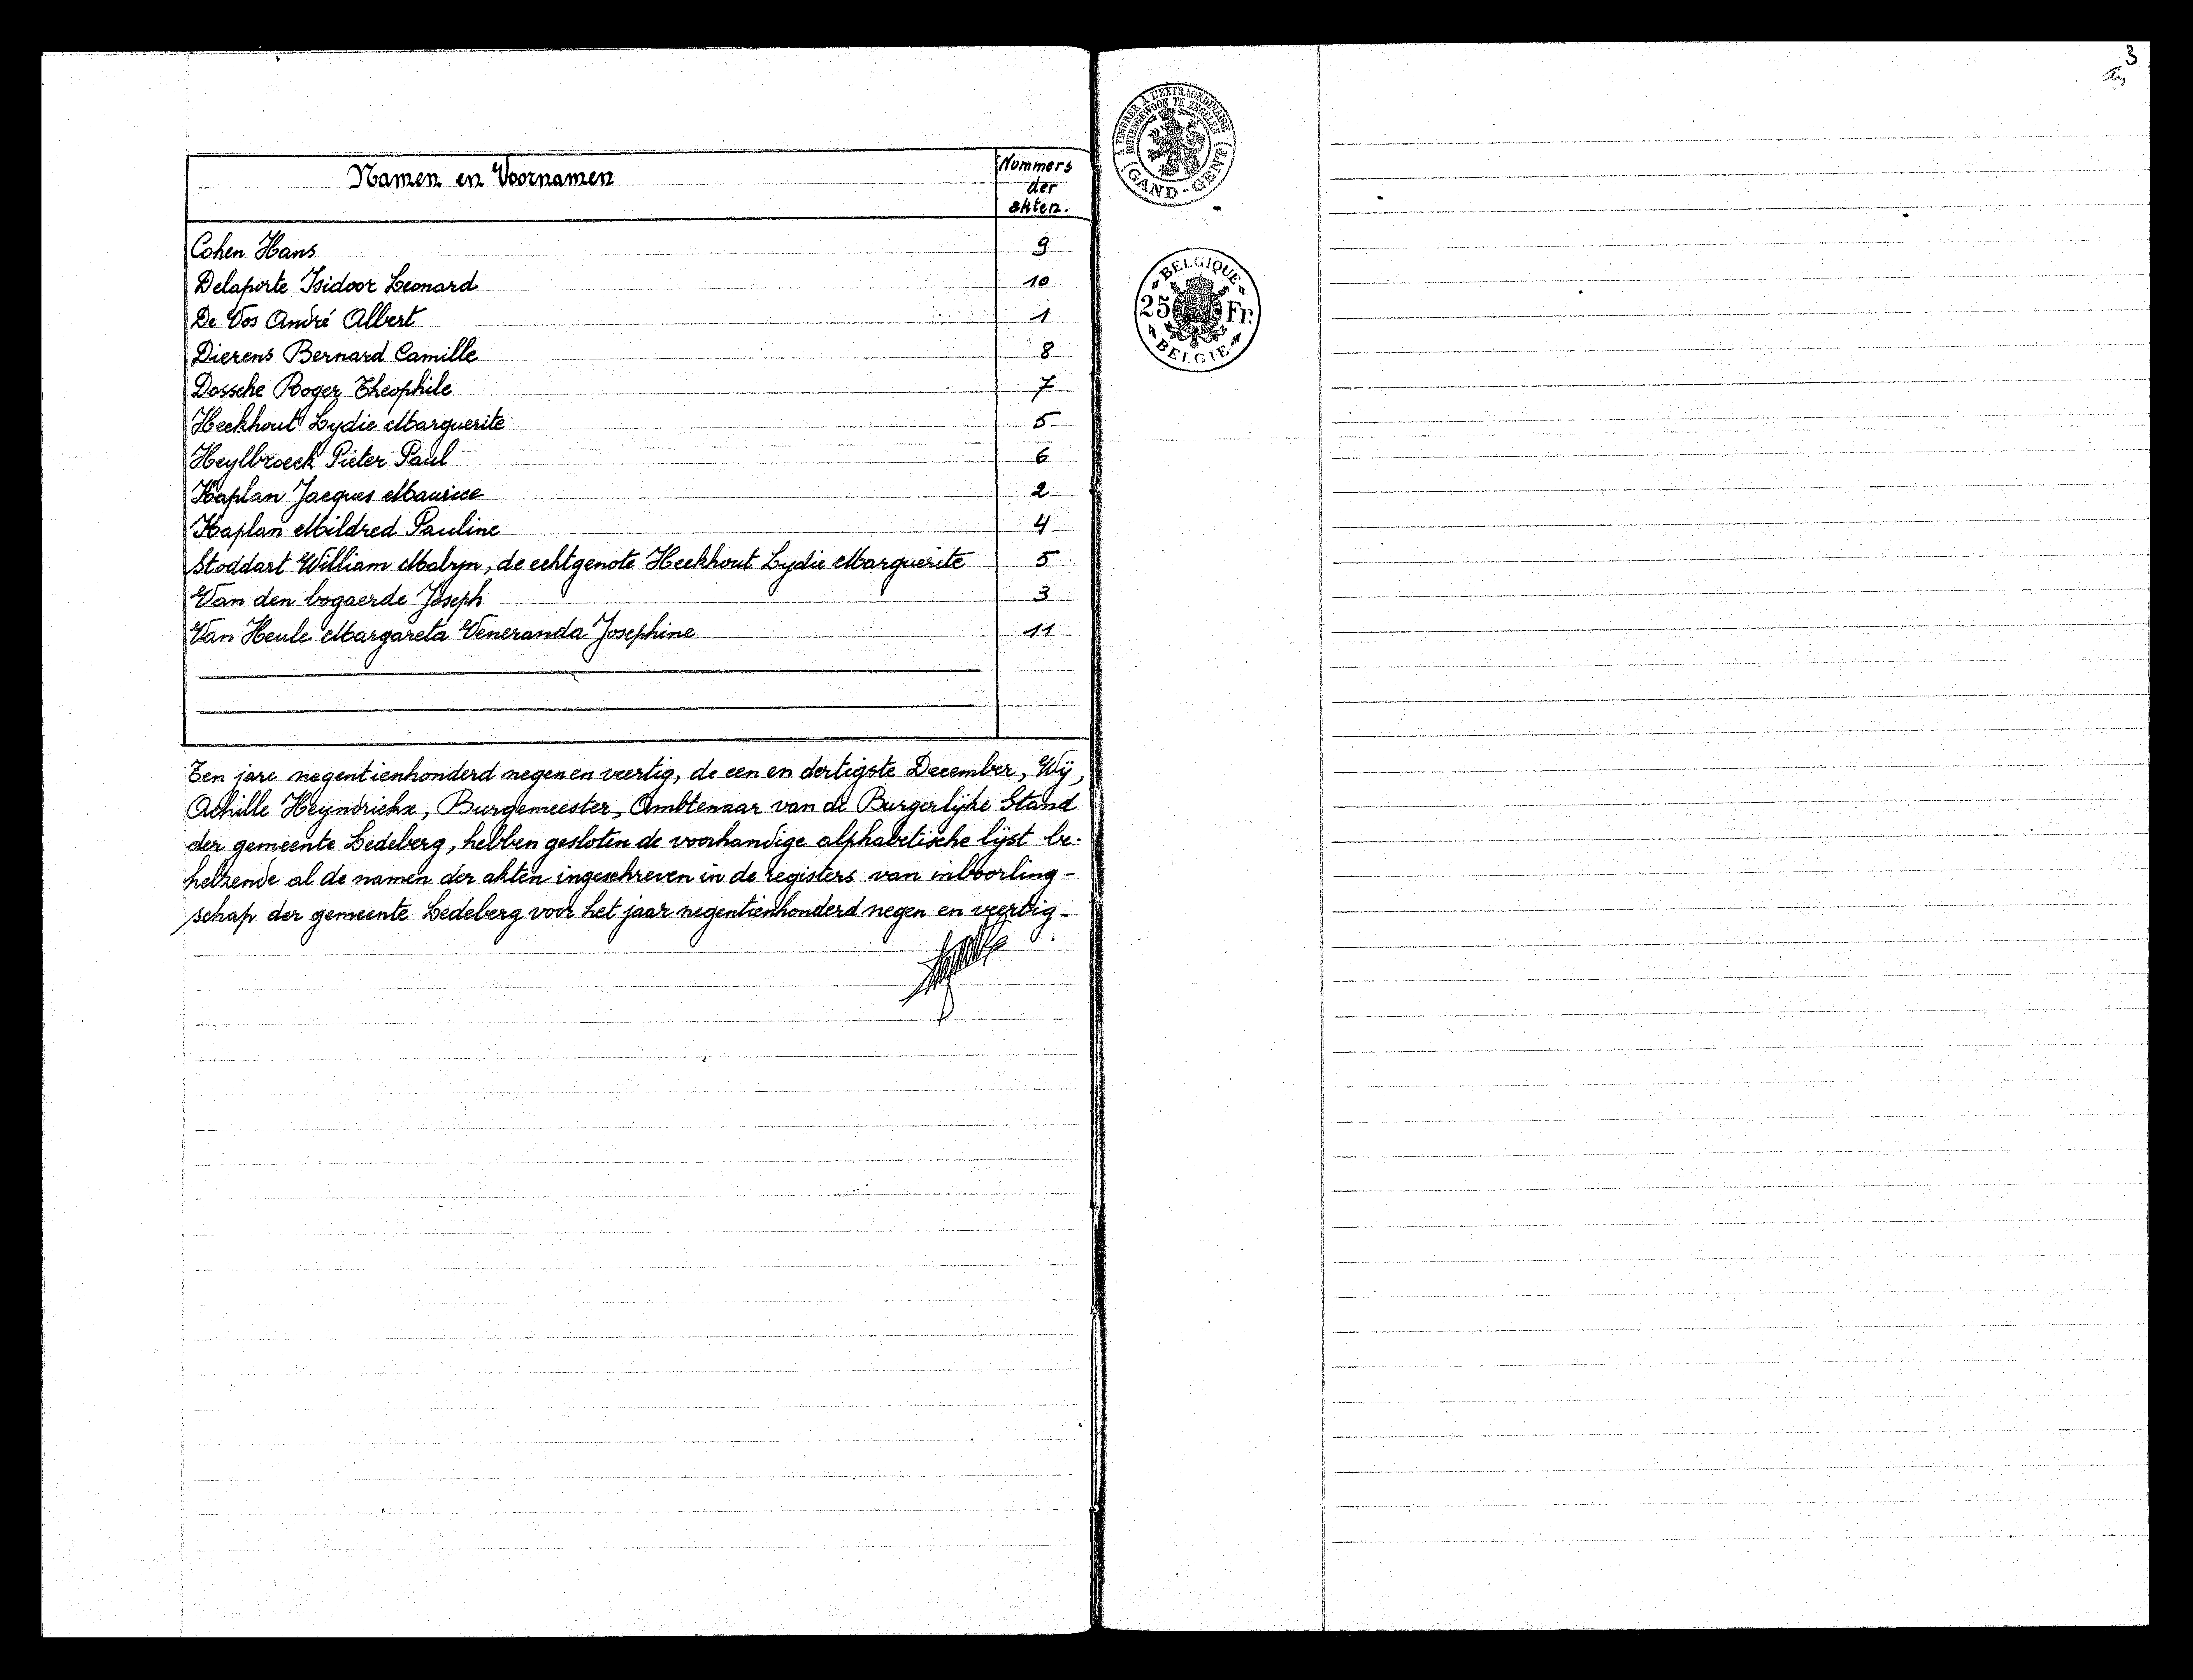 Namen en Voornamen
Nummers
der
akten.
Cohen Hans 9
Delaporte Isidoor Leonard 10
De Vos André Albert 1
Dierens Bernard Camille 8
Dossche Roger Theophile 7
Heekhout Lydie Marguerite 5
Heylbroeck Pieter Paul 6
Kaplan Jacques Maurice 2
Kaplan Mildred Pauline 4
Stoddart William Malryn, de echtgenote Heekhout Lydie Marguerite 5
Van den bogaerde Joseph 3
Van Heule Margareta Veneranda Josephine 11
Ten jare negentienhonderd negen en veertig, de een en dertigste December, Wij,
Achille Heyndrickx, Burgemeester, Ambtenaar van de Burgerlijke Stand
der gemeente Ledeberg, hebben gesloten de voorhandige alphabetische lijst be-
helzende al de namen der akten ingeschreven in de registers van inboorling-
schap der gemeente Ledeberg voor het jaar negentienhonderd negen en veertig.
A TIMBRER A L'EXTRAORDINAIRE
BUITENGEWOON TE ZEGELEN
(GAND-GENT)
BELGIQUE
25 Fr.
BELGIE
3